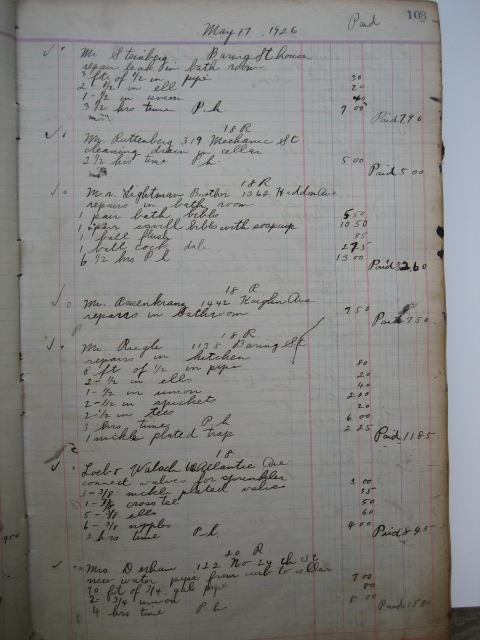 103
May 17 1926
Paid
Mr Steinberg Baring St house
repair leak in bath room
3 ft of 1/2 in pipe 30
2 1/2 in ell 20
1 - 1/2 in union 40
3 1/2 hrs time P.h 7 00
Paid 7.90
18 R
Mr. Ruttenberg 319 Mechanic St
cleaning drain in cellar
2 1/2 hrs time P h 5 00
Paid 5 00
18 R
Mr. Lightman Brother 1362 Haddon Ave
repairs in bath room
1 pair bath bibbs 5 50
1 pair bibbs with soapcup 10 50
1 ball flush 85
1 ball cock 2 75
6 1/2 hrs P h 13 00
Paid 32.60
18 R
Mr. Rosenkranz 1442 Kaighn Ave
repairs in bathroom 7 50
Paid 7 50
18 R
Mr. Rugle 1138 Baring St
repairs in kitchen
8 ft of 1/2 in pipe 80
2 - 1/2 in ells 20
1 - 1/2 in union 40
2 - 1/2 in spickets 2 00
2 - 1/2 in tees 20
3 hrs time P h 6 00
1 nickle plated trap 2 25
Paid 11 85
18
Loeb & Walsch Atlantic Ave
conned valves for sprinkler
3 - 3/8 nickle plated valves 3 00
1 - 3/8 cross tee 35
5 - 3/8 ells 50
6 - 3/8 nipples 60
2 hrs time P.h. 4 00
Paid 8 45
20 R
Mrs Derham 122 No 24 th St
new water pipe from curb to cellar
70 ft of 3/4 gal pipe 7 00
2 - 3/4 union 80
4 hrs time P h 8 00
Paid 15 80